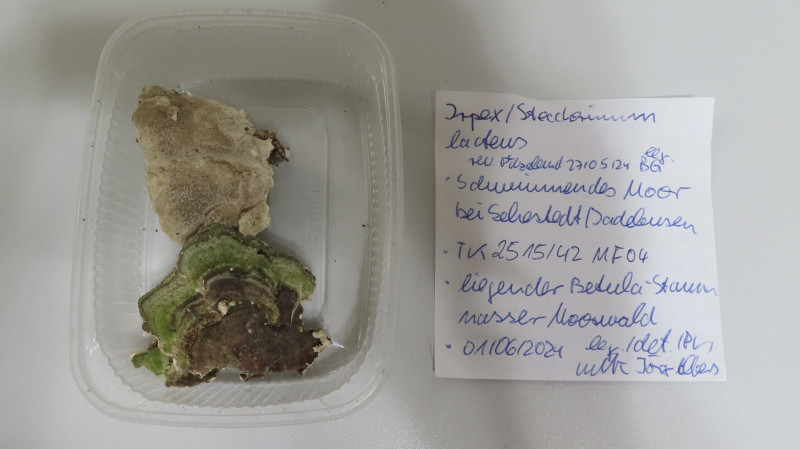 Irpex/Steccherinum
lacteus
rev 27/05/24 leg. BG
· Schwimmendes Moor
bei Sehestedt/
· TK 2515/42 MF04
· liegender Betula-Stamm
nasser Moorwald
· 01/06/2024 leg./det.
mit Jörg Albers